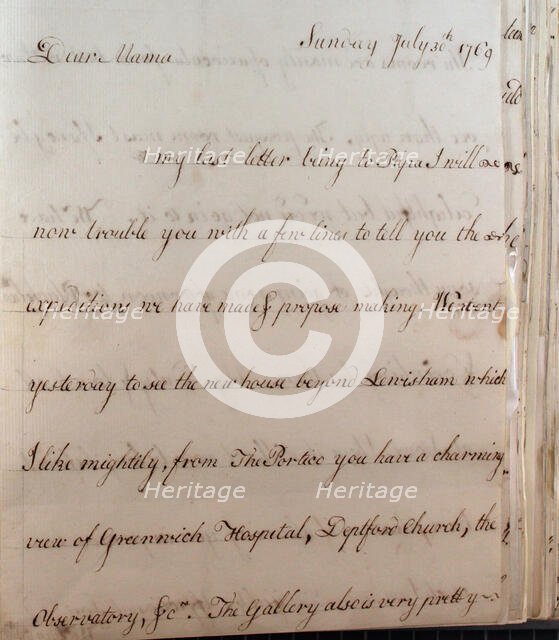 Sunday July 30th 1769
Dear Mama
my last letter being to Papa I will
now trouble you with a few lines to tell you the
expeditions we have made & propose making. We went
yesterday to see the new house beyond Lewisham which
I like mightily, from The Portico you have a charming
view of Greenwich Hospital, Deptford Church, the
Observatory, &c. The Gallery also is very pretty